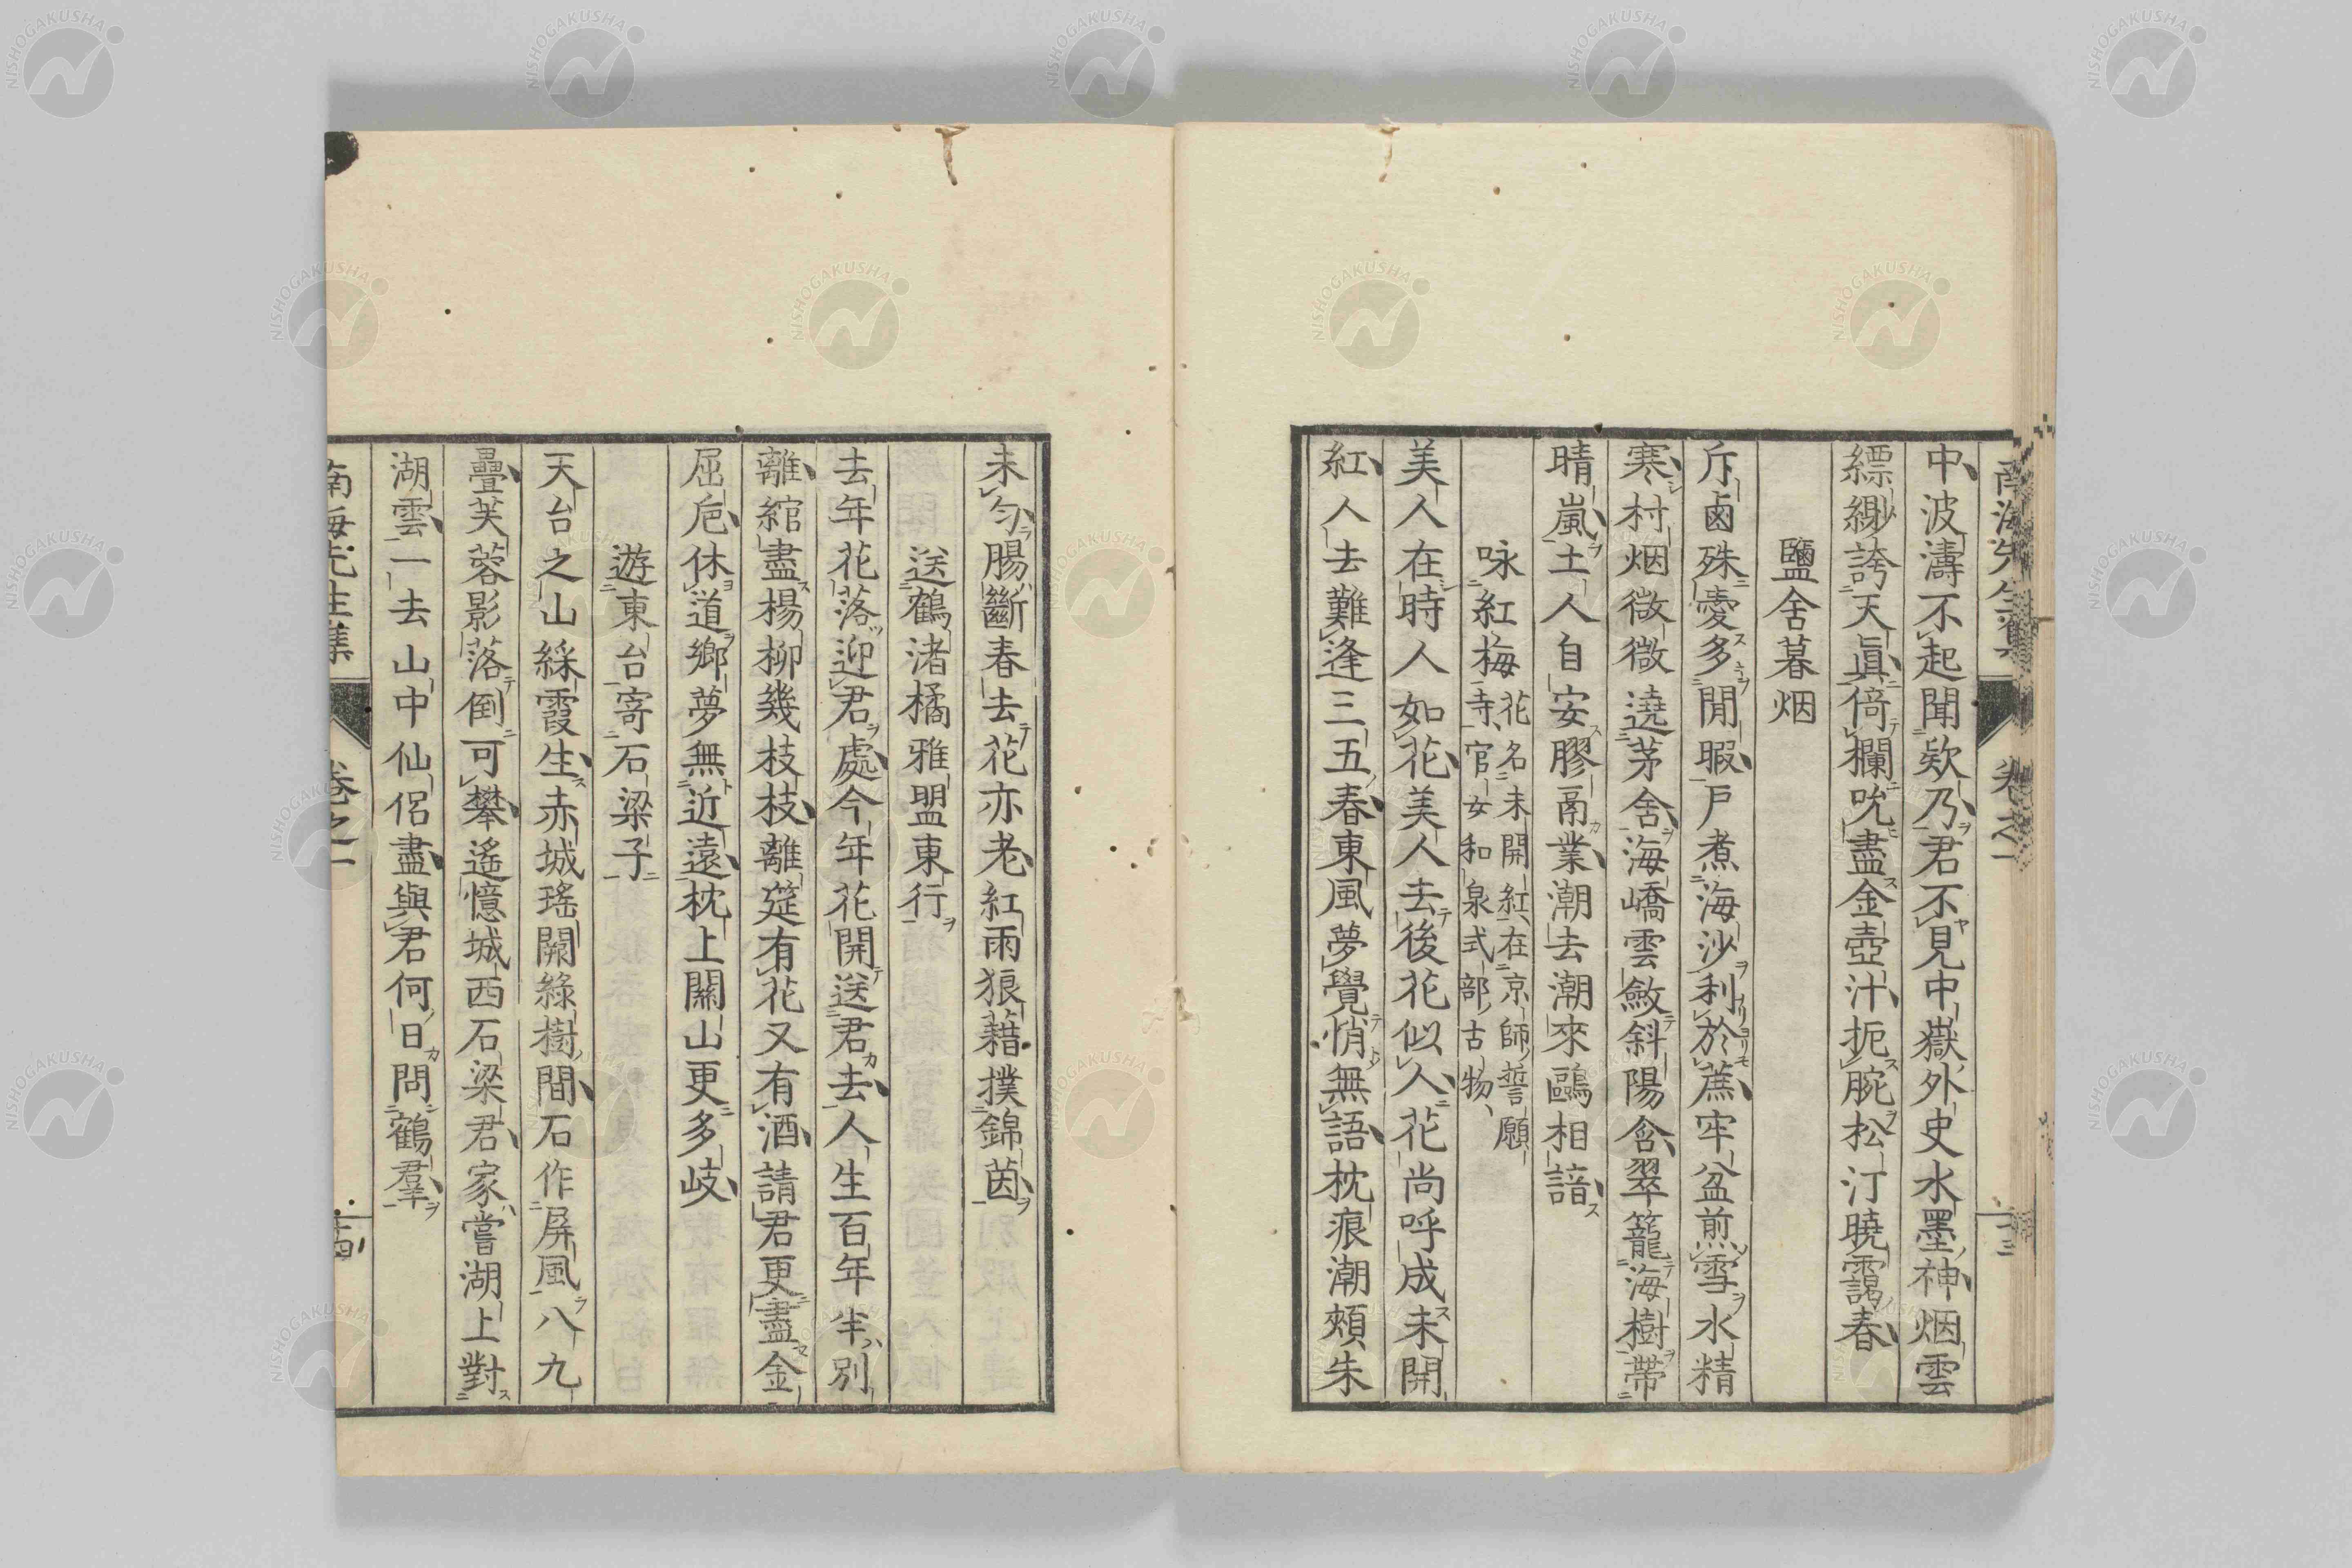 中波濤不起聞欵乃君不見中嶽外史水墨神烟雲
縹緲誇天眞倚欄吮盡金壺汁扼腕松汀曉靄春
鹽舍暮烟
斥鹵殊憂多閒暇戸煮海沙利於蔗牢盆煎雪水精
寒村烟微微遶茅舍海嶠雲斂斜陽含翠籠海樹帶
晴嵐土人自安膠鬲業潮去潮來鷗相諳
咏紅梅
花名未開紅在京師誓願
寺官女和泉式部古物
美人在時人如花美人去後花似人花尚呼成未開
紅人去難逢三五春東風夢覺悄無語枕痕潮頰朱
未勻腸斷春去花亦老紅雨狼藉撲錦茵
送鶴渚橘雅盟東行
去年花落迎君處今年花開送君去人生百年半別
離綰盡楊柳幾枝枝離筵有花又有酒請君更盡金
屈巵休道鄉夢無近遠枕上關山更多岐
遊東台寄石梁子
天台之山綵霞生赤城瑤闕綠樹間石作屏風八九
疊芙蓉影落倒可攀遙憶城西石梁君家嘗湖上對
湖雲一去山中仙侶盡與君何日問鶴羣
南海先生集 卷之一 十四
NISHOGAKUSHA